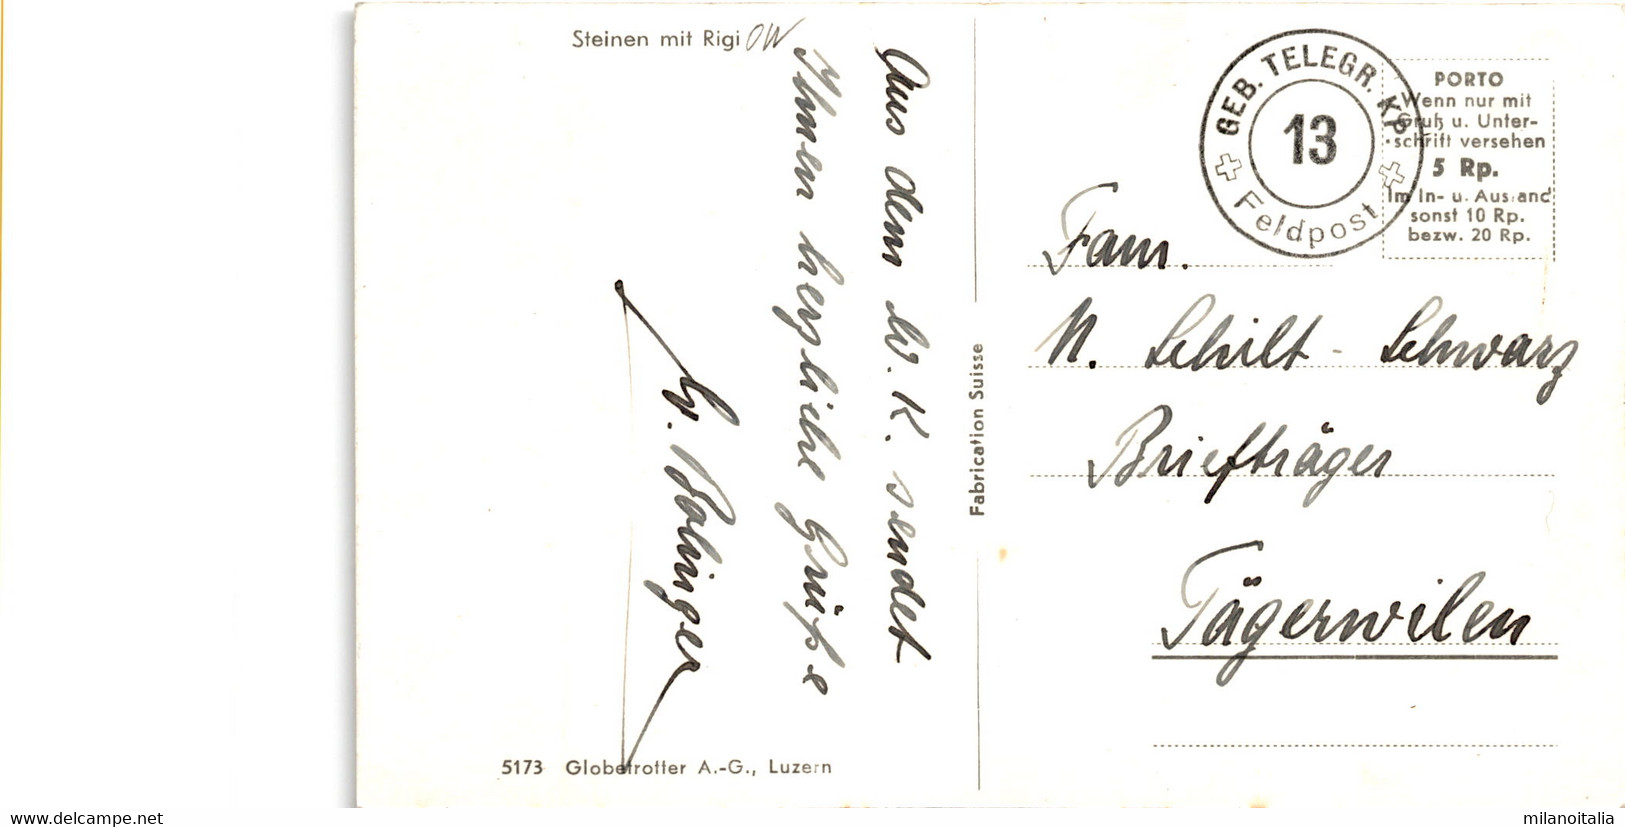 Steinen mit Rigi
Aus dem W.K. sendet
Ihnen herzliche Grüße
W. Bolinger
5173 Globetrotter A.-G., Luzern
Fabrication Suisse
GEB. TELEGR. KP.
13
Feldpost
PORTO
Wenn nur mit
Gruß u. Unter-
schrift versehen
5 Rp.
Im In- u. Ausland
sonst 10 Rp.
bezw. 20 Rp.
Fam.
N. Schilt - Schwarz
Briefträger
Tägerwilen
delcampe.net
milanoitalia